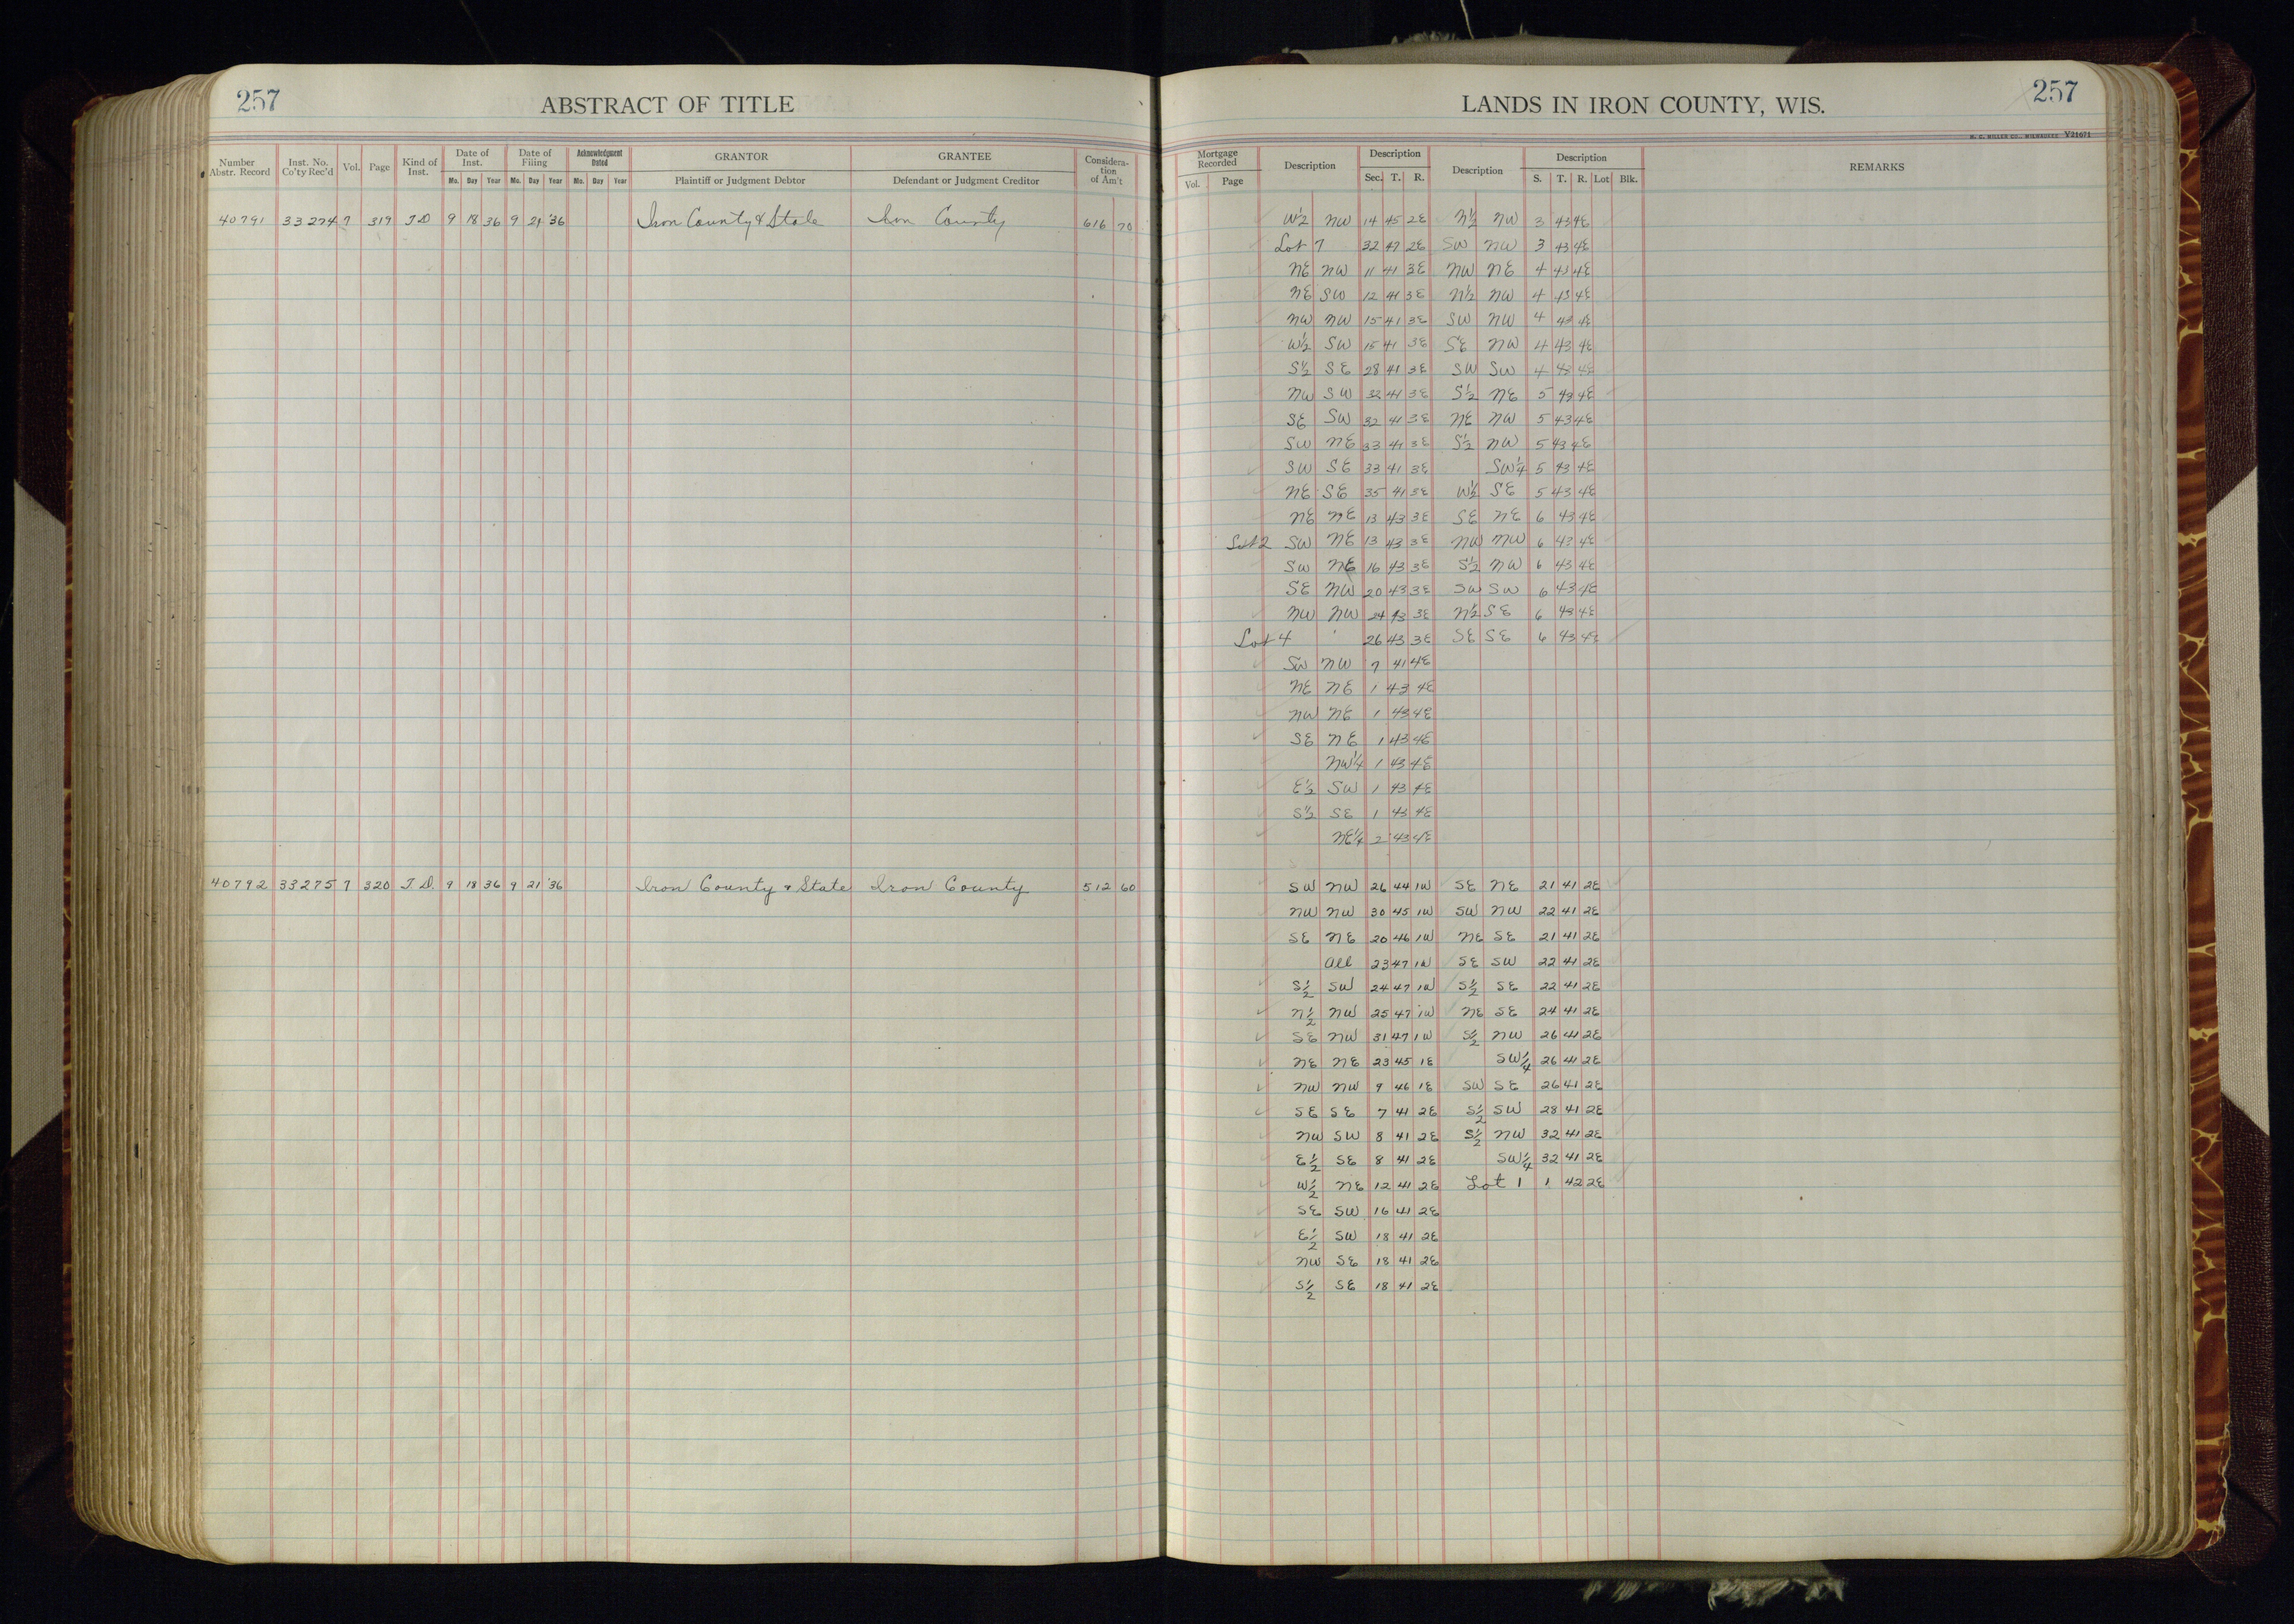 257
ABSTRACT OF TITLE
LANDS IN IRON COUNTY, WIS.
257
H. C. MILLER CO., MILWAUKEE V21671
Number Abstr. Record Inst. No. Co'ty Rec'd Vol. Page Kind of Inst. Date of Inst. Mo. Day Year Date of Filing Mo. Day Year Acknowledgment Dated Mo. Day Year GRANTOR Plaintiff or Judgment Debtor GRANTEE Defendant or Judgment Creditor Considera-tion of Am't
Mortgage Recorded Vol. Page Description Description Sec. T. R. Description Description S. T. R. Lot Blk. REMARKS
40791 33274 7 319 T D 9 18 36 9 21 '36 Iron County & State Iron County 616 70
W½ NW 14 45 2E N½ NW 3 43 4E
Lot 7 32 47 2E SW NW 3 43 4E
NE NW 11 41 3E NW NE 4 43 4E
NE SW 12 41 3E N½ NW 4 43 4E
NW NW 15 41 3E SW NW 4 43 4E
W½ SW 15 41 3E SE NW 4 43 4E
S½ SE 28 41 3E SW SW 4 43 4E
NW SW 32 41 3E S½ NE 5 43 4E
SE SW 32 41 3E NE NW 5 43 4E
SW NE 33 41 3E S½ NW 5 43 4E
SW SE 33 41 3E SW¼ 5 43 4E
NE SE 35 41 3E W½ SE 5 43 4E
NE NE 13 43 3E SE NE 6 43 4E
Lot 2 SW NE 13 43 3E NW NW 6 43 4E
SW NE 16 43 3E S½ NW 6 43 4E
SE NW 20 43 3E SW SW 6 43 4E
NW NW 24 43 3E N½ SE 6 43 4E
Lot 4 26 43 3E SE SE 6 43 4E
SW NW 7 41 4E
NE NE 1 43 4E
NW NE 1 43 4E
SE NE 1 43 4E
NW¼ 1 43 4E
E½ SW 1 43 4E
S½ SE 1 43 4E
NE¼ 2 43 4E
40792 33275 7 320 T D. 9 18 36 9 21 '36 Iron County & State Iron County 512 60
SW NW 26 44 1W SE NE 21 41 2E
NW NW 30 45 1W SW NW 22 41 2E
SE NE 20 46 1W NE SE 21 41 2E
All 23 47 1W SE SW 22 41 2E
S½ SW 24 47 1W S½ SE 22 41 2E
N½ NW 25 47 1W NE SE 24 41 2E
SE NW 31 47 1W S½ NW 26 41 2E
NE NE 23 45 1E SW¼ 26 41 2E
NW NW 9 46 1E SW SE 26 41 2E
SE SE 7 41 2E S½ SW 28 41 2E
NW SW 8 41 2E S½ NW 32 41 2E
E½ SE 8 41 2E SW¼ 32 41 2E
W½ NE 12 41 2E Lot 1 1 42 2E
SE SW 16 41 2E
E½ SW 18 41 2E
NW SE 18 41 2E
S½ SE 18 41 2E